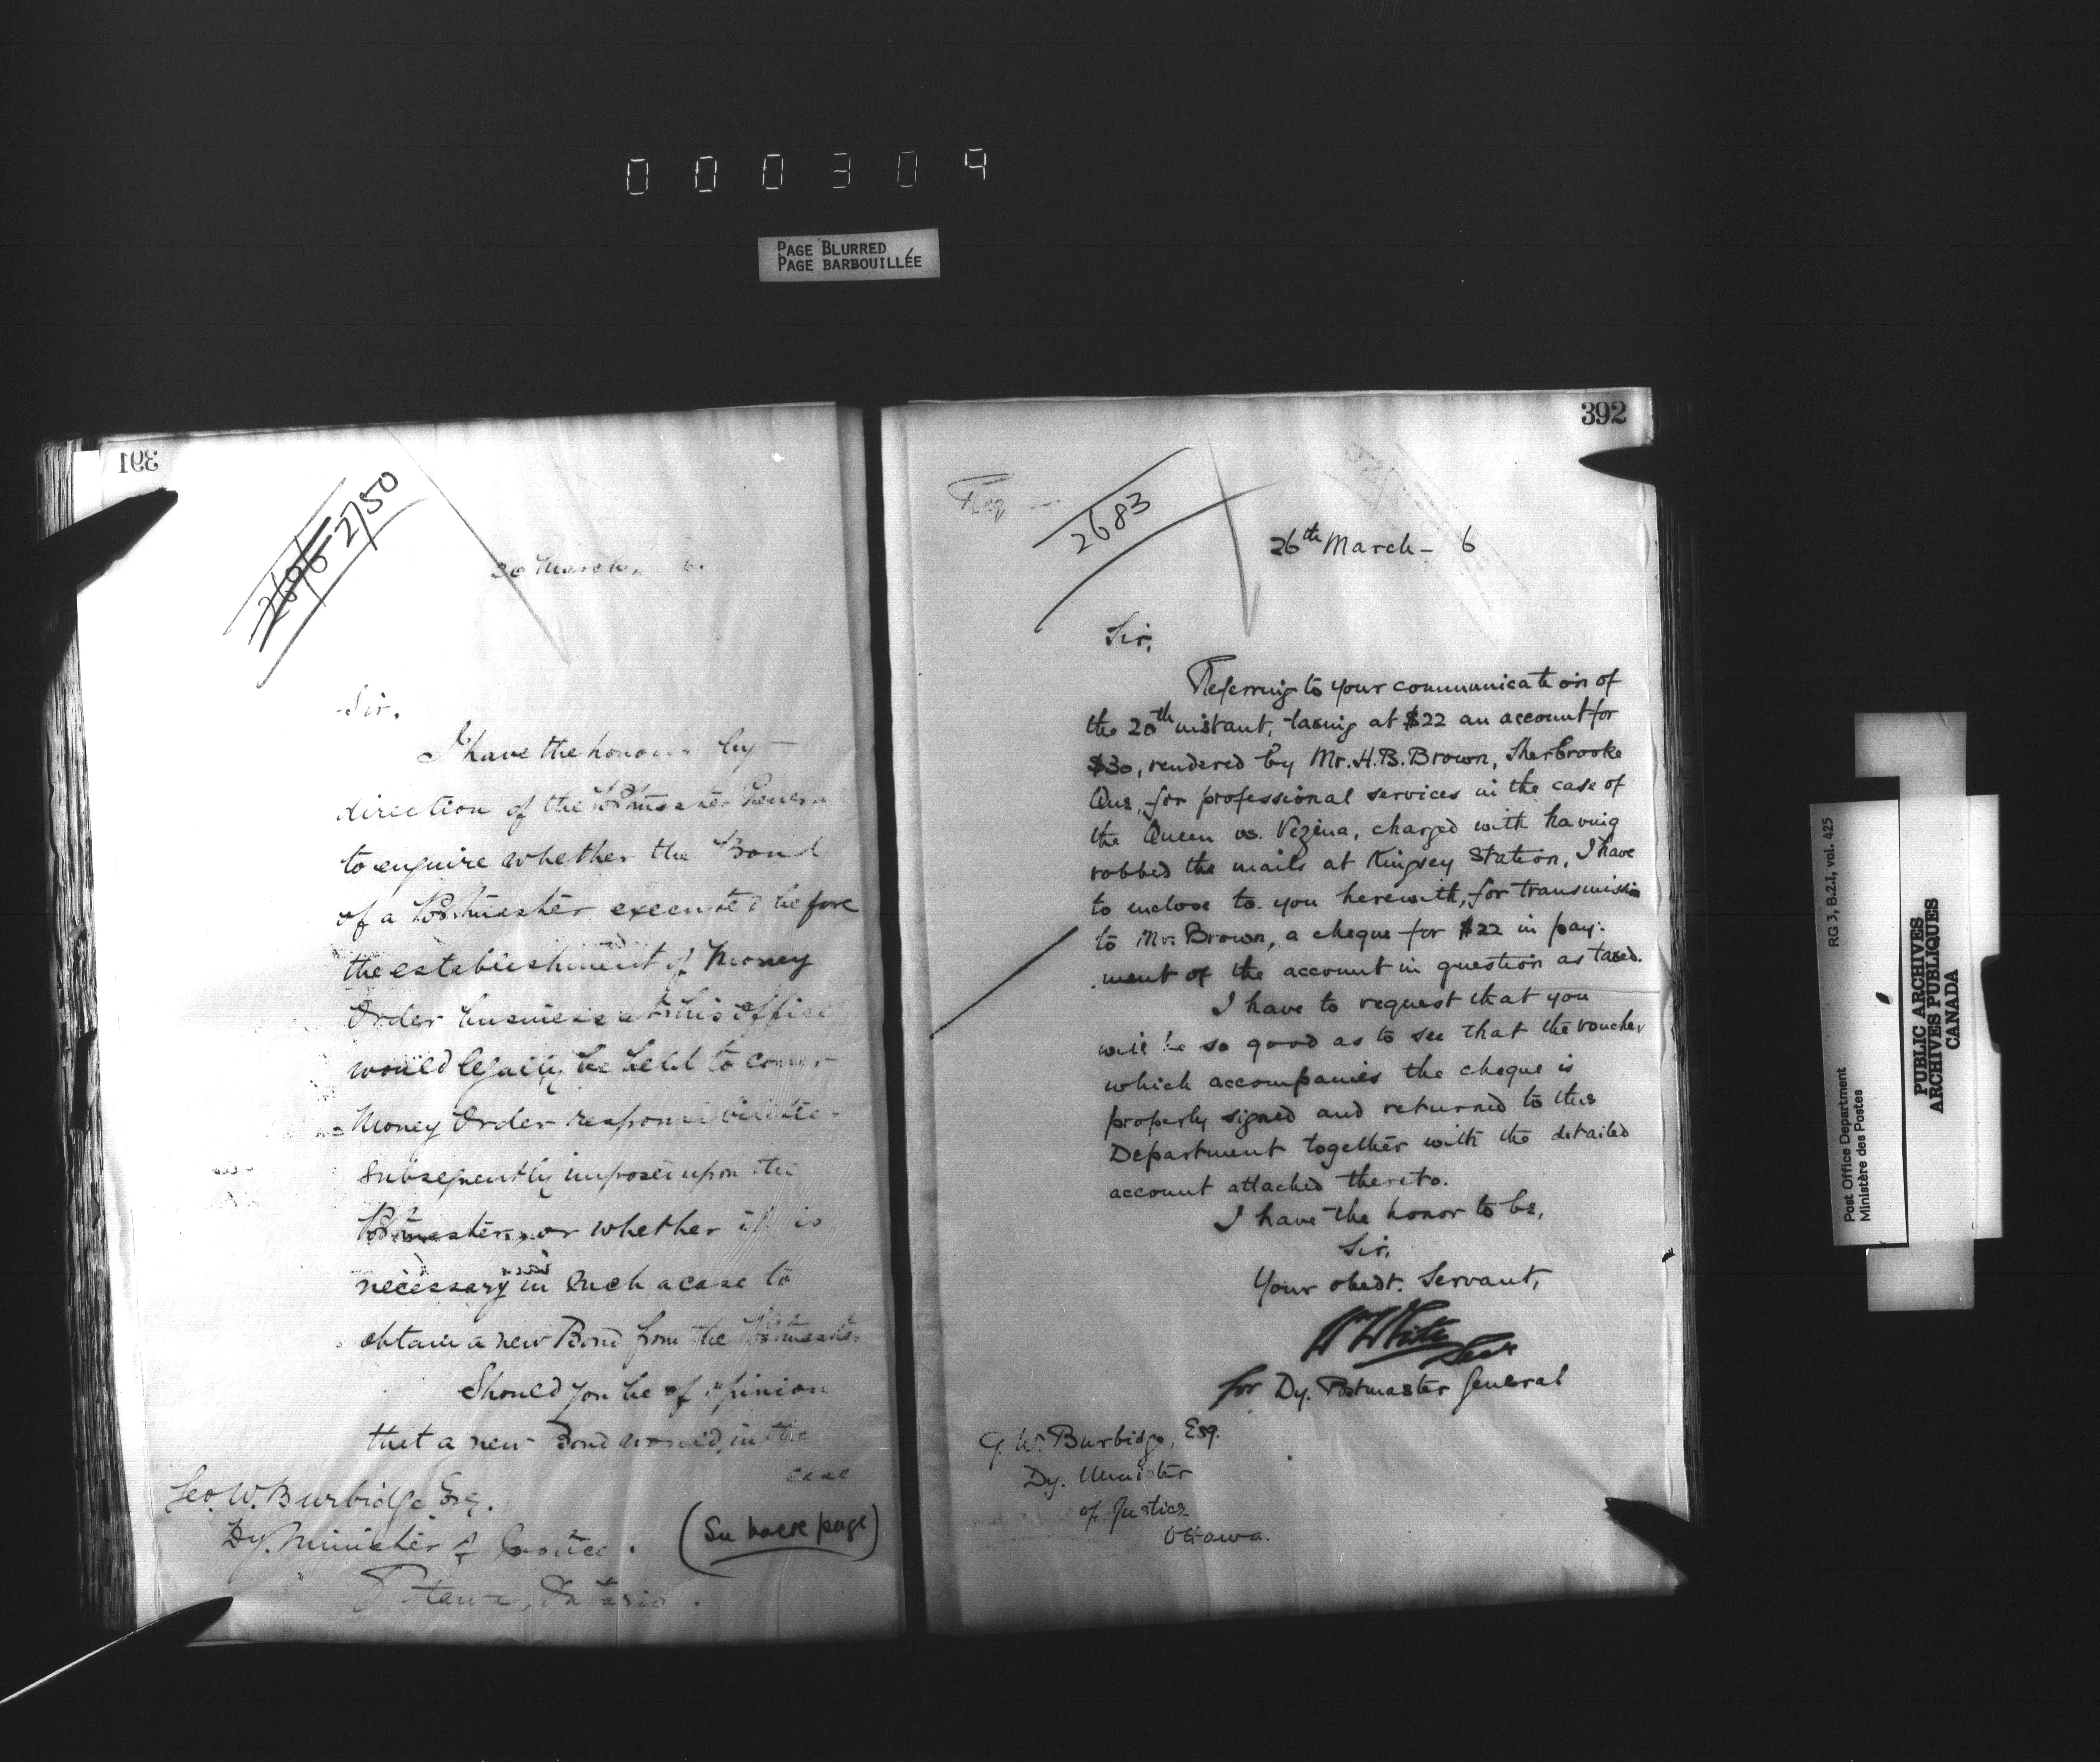 000304
PAGE BLURRED
PAGE BARBOUILLÉE
391
2696 2750
30 March, 6.
Sir,
I have the honour by
direction of the Postmaster General
to enquire whether the Bond
of a Postmaster executed before
the establishment of Money
Order business at his office
would legally be held to cover
Money Order responsibilities
subsequently imposed upon the
Postmaster, or whether it is
necessary in such a case to
obtain a new Bond from the Postmaster
Should you be of opinion
that a new Bond would, in the
case
Geo. W. Burbidge Esq.
Dy. Minister of Justice.
Ottawa, Ontario.
(See back page)
392
2683
26th March - 6
Sir,
Referring to your communication of
the 20th instant, taxing at $22 an account for
$30, rendered by Mr. H.B. Brown, Sherbrooke
Que, for professional services in the case of
the Queen vs. Vezina, charged with having
robbed the mails at Kingsey Station, I have
to enclose to you herewith, for transmission
to Mr. Brown, a cheque for $22 in pay-
ment of the account in question as taxed.
I have to request that you
will be so good as to see that the voucher
which accompanies the cheque is
properly signed and returned to this
Department together with the detailed
account attached thereto.
I have the honor to be,
Sir,
Your obedt. Servant,
Wm White
Secr
for Dy. Postmaster General
G. W. Burbidge, Esq.
Dy. Minister
of Justice
Ottawa.
Post Office Department
Ministère des Postes
RG 3, B.2.1, vol. 425
PUBLIC ARCHIVES
ARCHIVES PUBLIQUES
CANADA